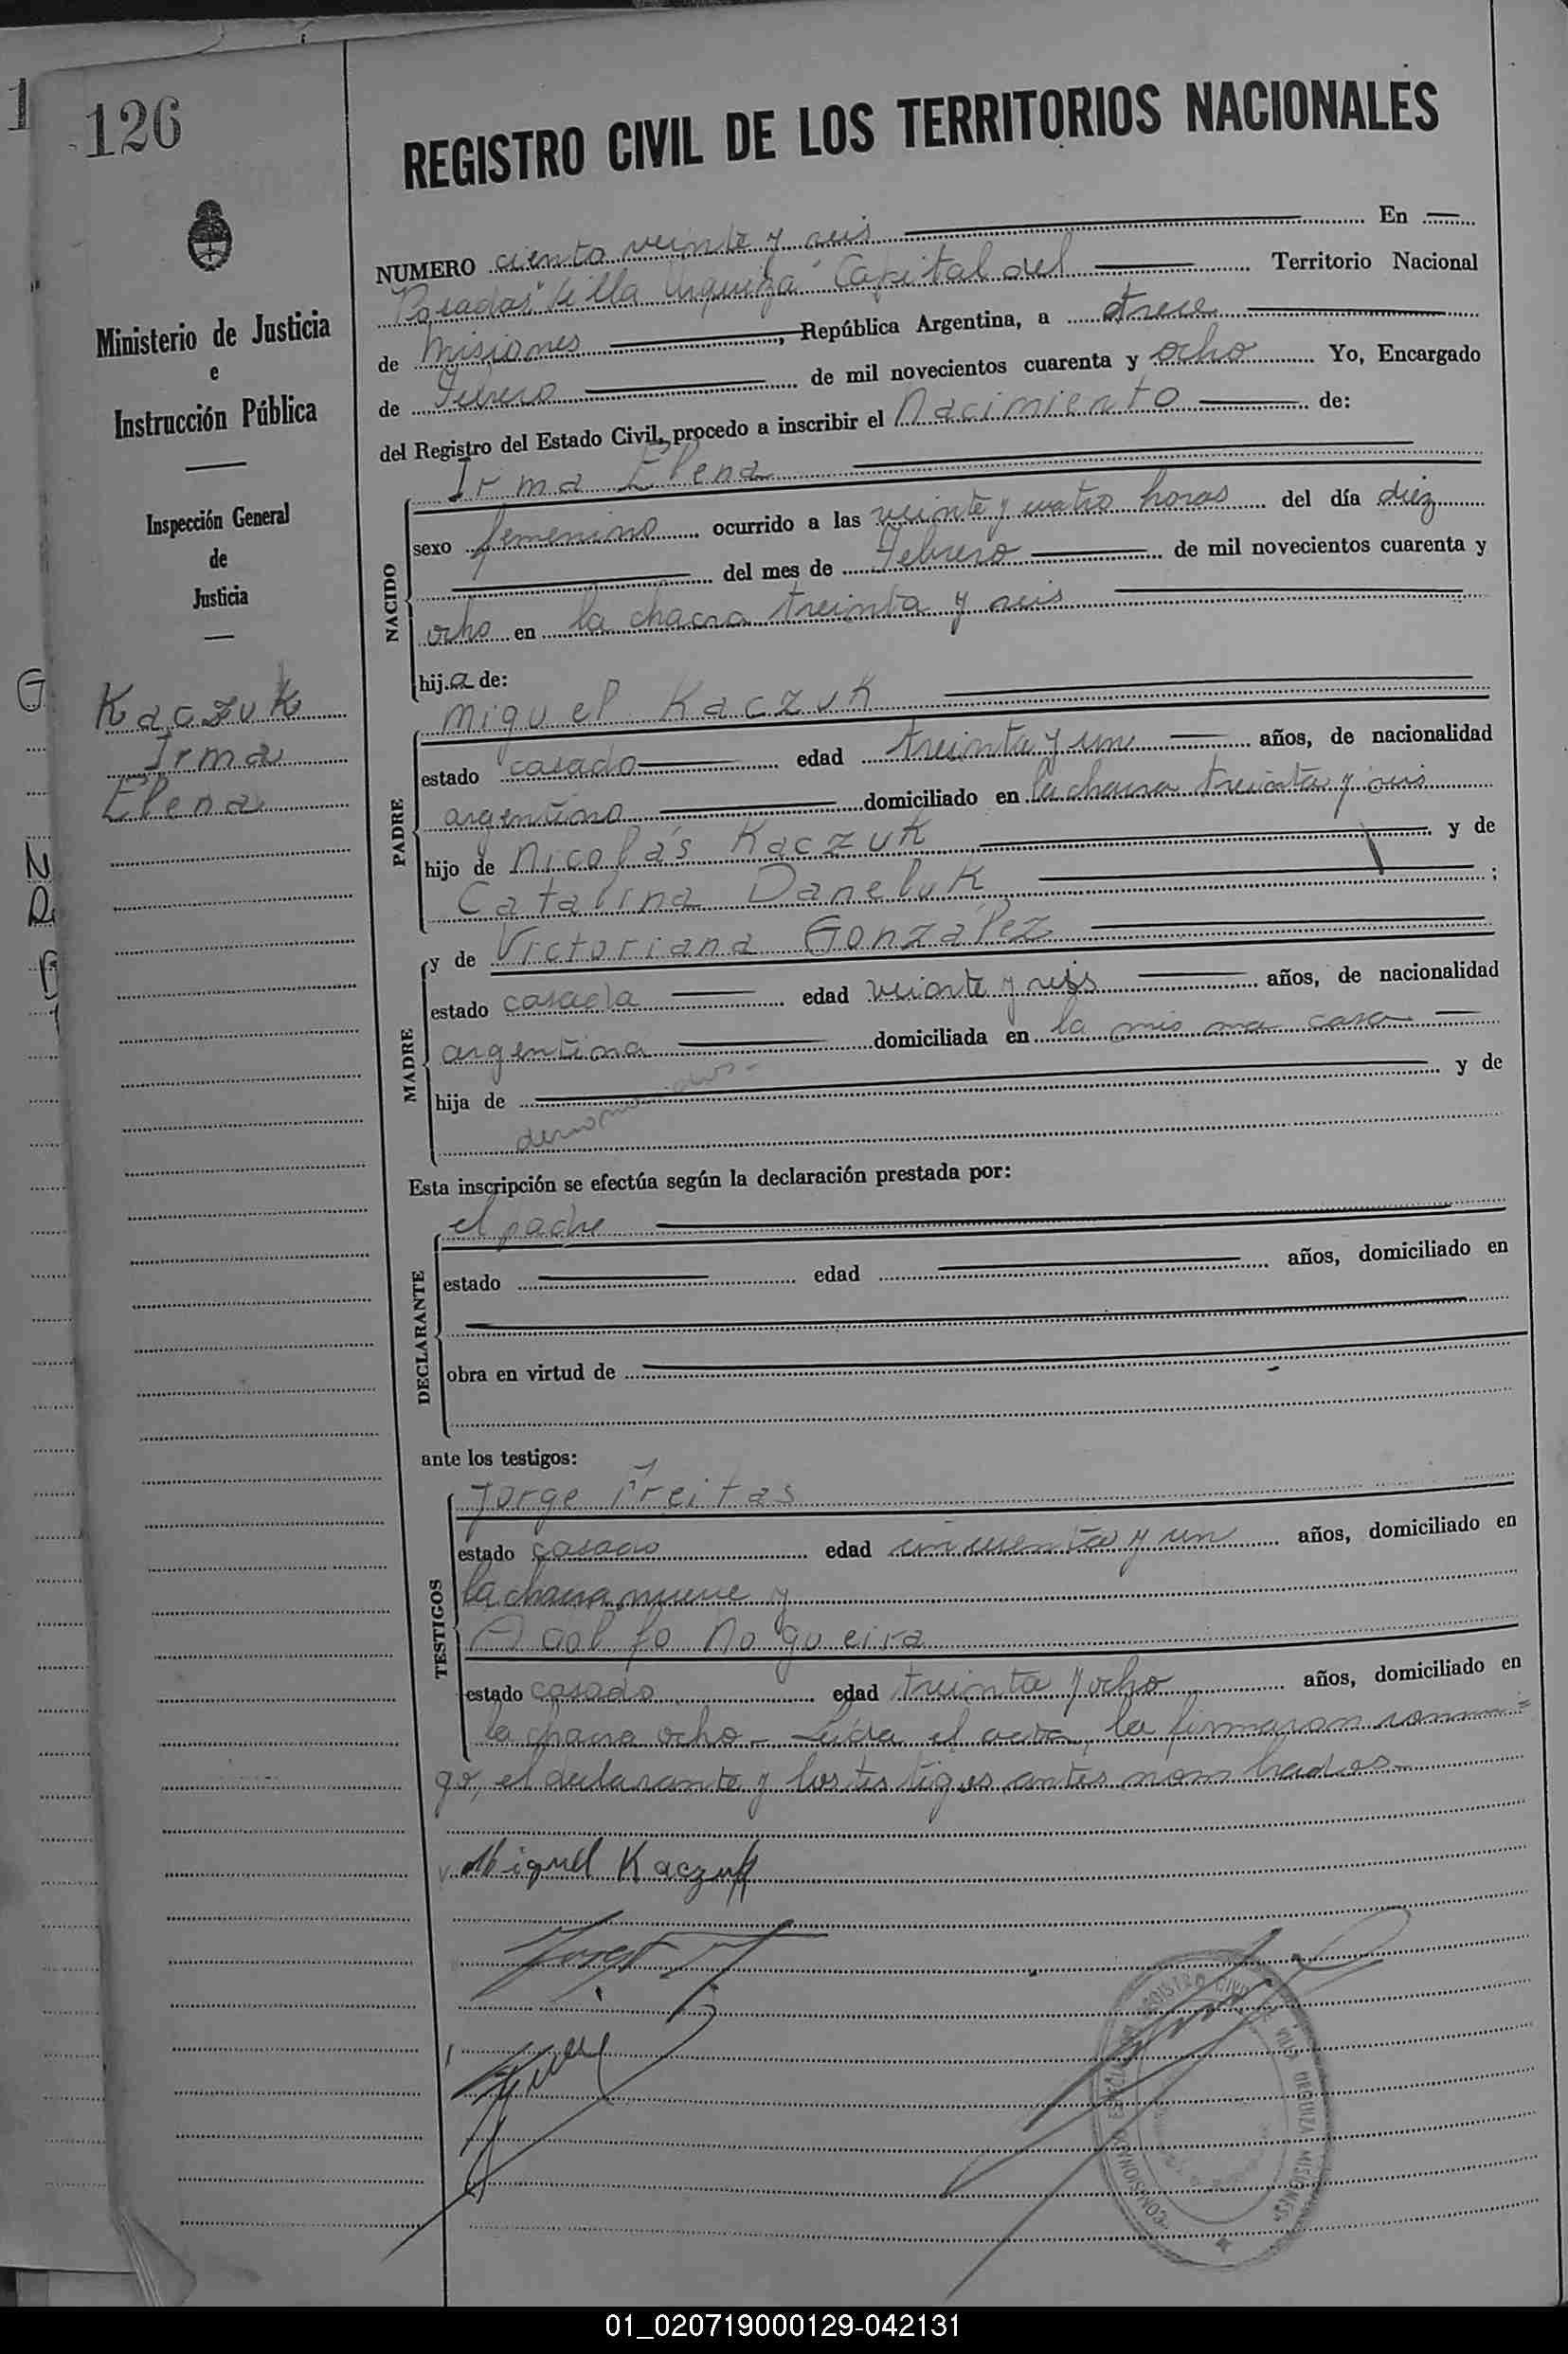 126
REGISTRO CIVIL DE LOS TERRITORIOS NACIONALES
NUMERO ciento veinte y seis En
Posadas "Villa Urquiza" Capital del Territorio Nacional
de Misiones, República Argentina, a trece
de Febrero de mil novecientos cuarenta y ocho Yo, Encargado
del Registro del Estado Civil, procedo a inscribir el Nacimiento de:
Ministerio de Justicia
e
Instrucción Pública
Inspección General
de
Justicia
Kaczuk
Irma
Elena
NACIDO
Irma Elena
sexo femenino ocurrido a las veinte y cuatro horas del día diez
del mes de Febrero de mil novecientos cuarenta y
ocho en la chacra treinta y seis
hija de:
PADRE
Miguel Kaczuk
estado casado edad treinta y un años, de nacionalidad
argentino domiciliado en la chacra treinta y seis
hijo de Nicolás Kaczuk y de
Catalina Daneluk ;
MADRE
y de Victoriana González
estado casada edad veinte y seis años, de nacionalidad
argentina domiciliada en la misma casa
hija de y de
Esta inscripción se efectúa según la declaración prestada por:
DECLARANTE
el padre
estado edad años, domiciliado en
obra en virtud de
ante los testigos:
TESTIGOS
Jorge Freitas
estado casado edad cincuenta y un años, domiciliado en
la chacra nueve y
Adolfo Nogueira
estado casado edad treinta y ocho años, domiciliado en
la chacra ocho - Leída el acta, la firmaron conmi=
go, el declarante y los testigos antes nombrados -
Miguel Kaczuk
REGISTRO CIVIL DE VILLA URQUIZA MISIONES
01_020719000129-042131